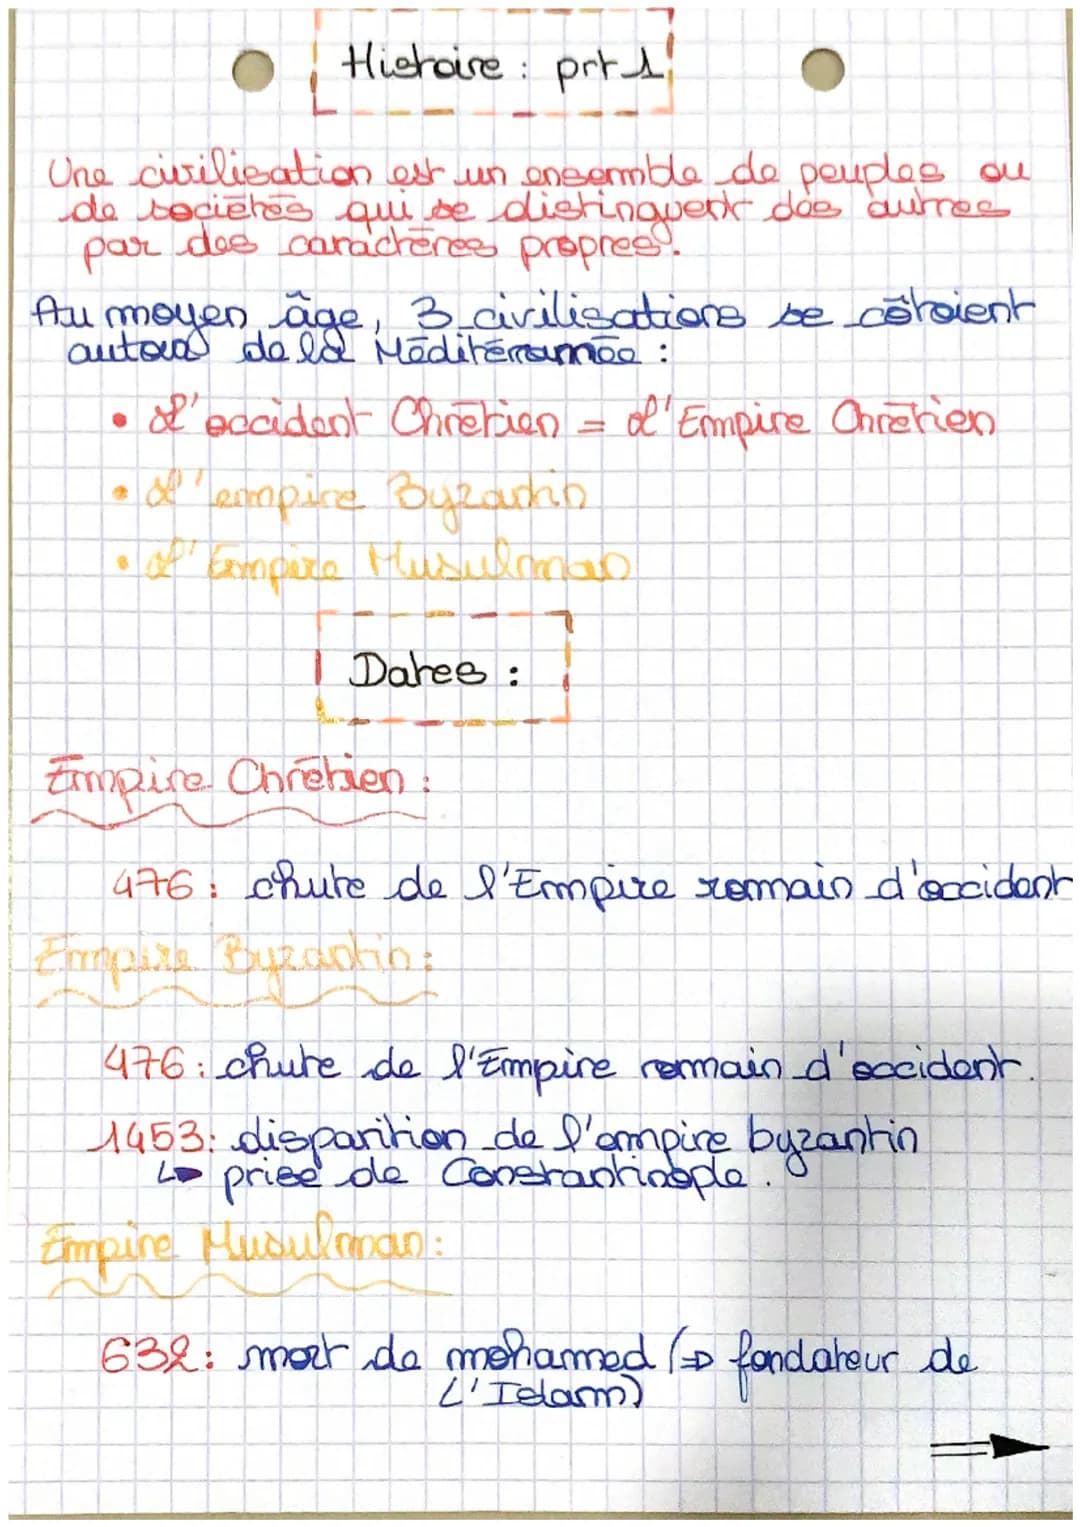 Histoire : prt 1
Une civilisation est un ensemble de peuples ou
de sociétés qui se distinguent des autres
par des caractères propres.
Au moyen âge, 3 civilisations se côtoient
autour de la Méditérrannée :
• L'occident Chrétien = L'Empire Chrétien
• L'empire Byzantin
• L'Empire Musulman
Dates :
Empire Chrétien :
476 : chute de l'Empire romain d'occident
Empire Byzantin :
476 : chute de l'Empire romain d'occident.
1453 : disparition de l'empire byzantin
↳ prise de Constantinople.
Empire Musulman :
632 : mort de mohammed (⇒ fondateur de
L'Islam)
⇒